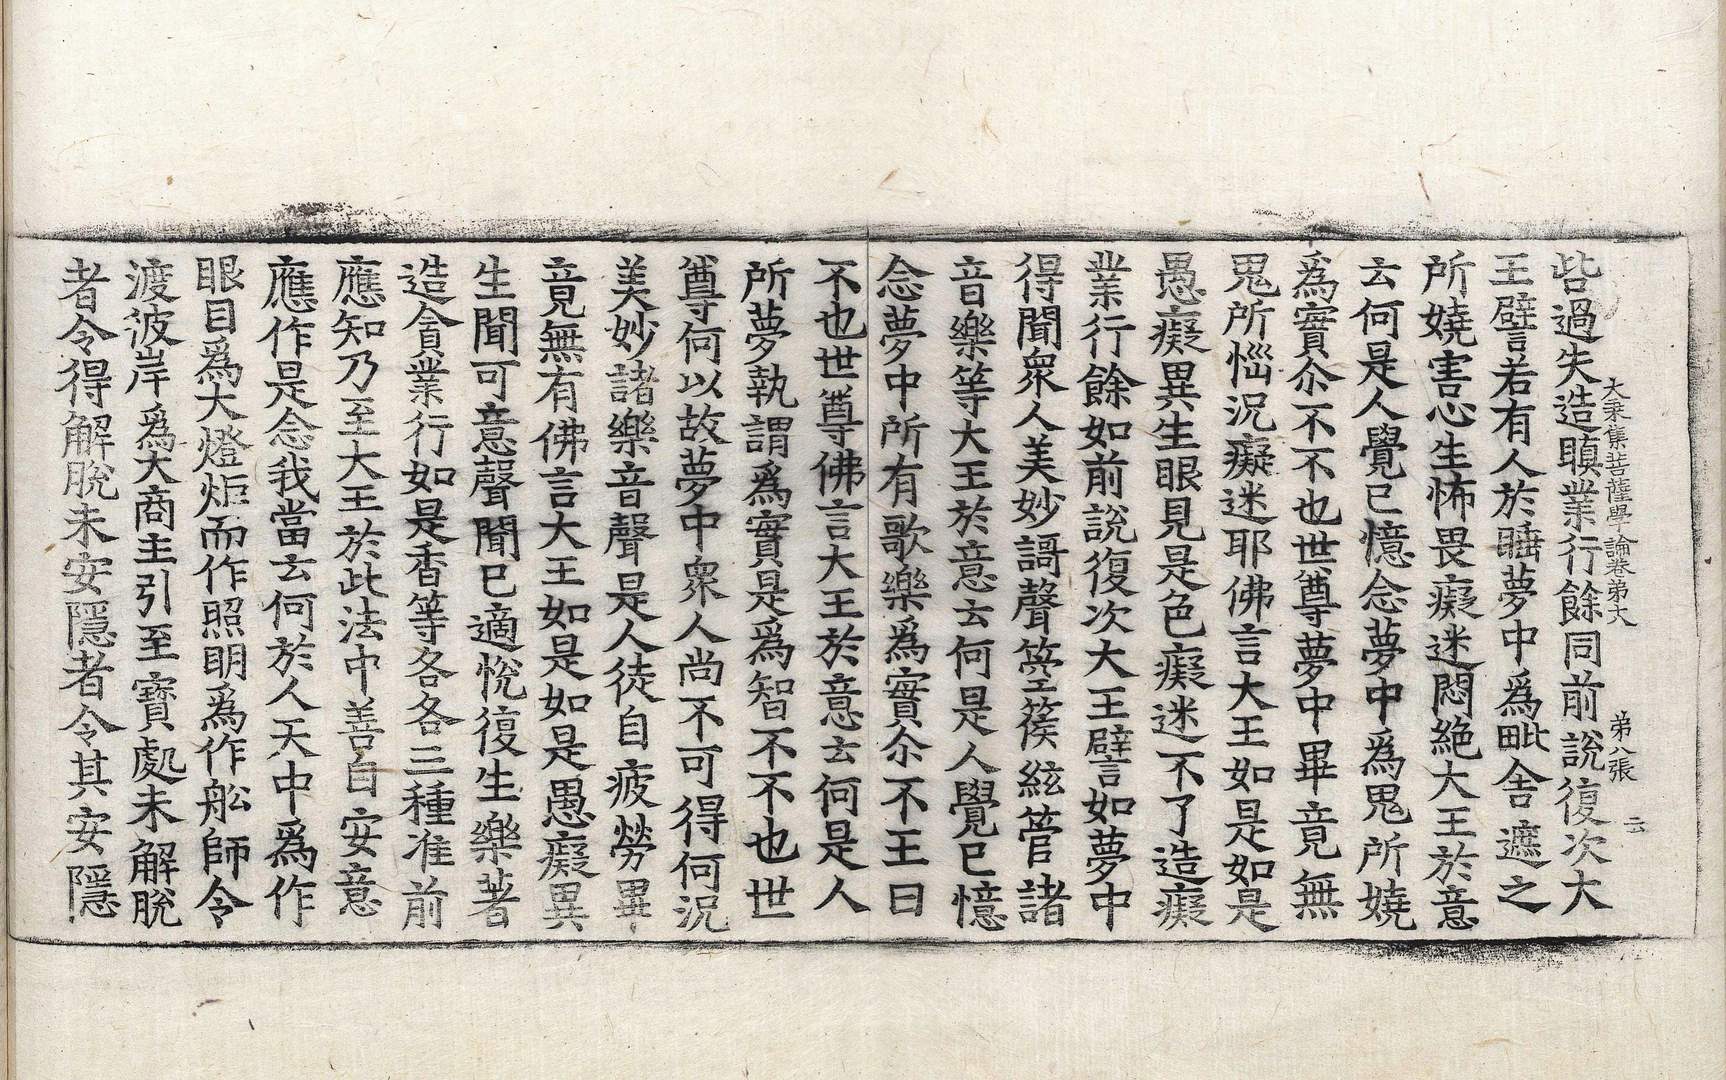 呰過失造瞋業行餘同前說復次大
大乘集菩薩學論卷第六 第八張 云
王譬若有人於睡夢中爲毗舍遮之
所嬈害心生怖畏癡迷悶絶大王於意
云何是人覺已憶念夢中爲鬼所嬈
爲實尒不不也世尊夢中畢竟無
鬼所惱況癡迷耶佛言大王如是如是
愚癡異生眼見是色癡迷不了造癡
業行餘如前說復次大王譬如夢中
得聞衆人美妙謌聲箜篌絃管諸
音樂等大王於意云何是人覺已憶
念夢中所有歌樂爲實尒不王曰
不也世尊佛言大王於意云何是人
所夢執謂爲實是爲智不不也世
尊何以故夢中衆人尚不可得何況
美妙諸樂音聲是人徒自疲勞畢
竟無有佛言大王如是如是愚癡異
生聞可意聲聞已適悅復生樂著
造貪業行如是香等各各三種准前
應知乃至大王於此法中善自安意
應作是念我當云何於人天中爲作
眼目爲大燈炬而作照明爲作舩師令
渡彼岸爲大商主引至寶處未解脫
者令得解脫未安隱者令其安隱